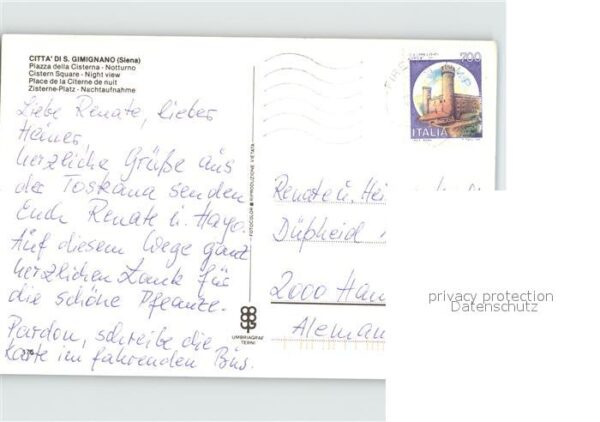 CITTA' DI S. GIMIGNANO (Siena)
Piazza della Cisterna - Notturno
Cistern Square - Night view
Place de la Citerne de nuit
Zisterne-Platz - Nachtaufnahme
Liebe Renate, lieber
Heiner,
herzliche Grüße aus
der Toskana senden
Euch Renate u. Hayo.
Auf diesem Wege ganz
herzlichen Dank für
die schöne Pflanze.
Pardon, schreibe die
Karte im fahrenden Bus.
FOTOCOLOR RIPRODUZIONE VIETATA
UMBRIAGRAF
TERNI
700
ITALIA
Renate u. Hei
2000 Ham
Aleman
privacy protection
Datenschutz